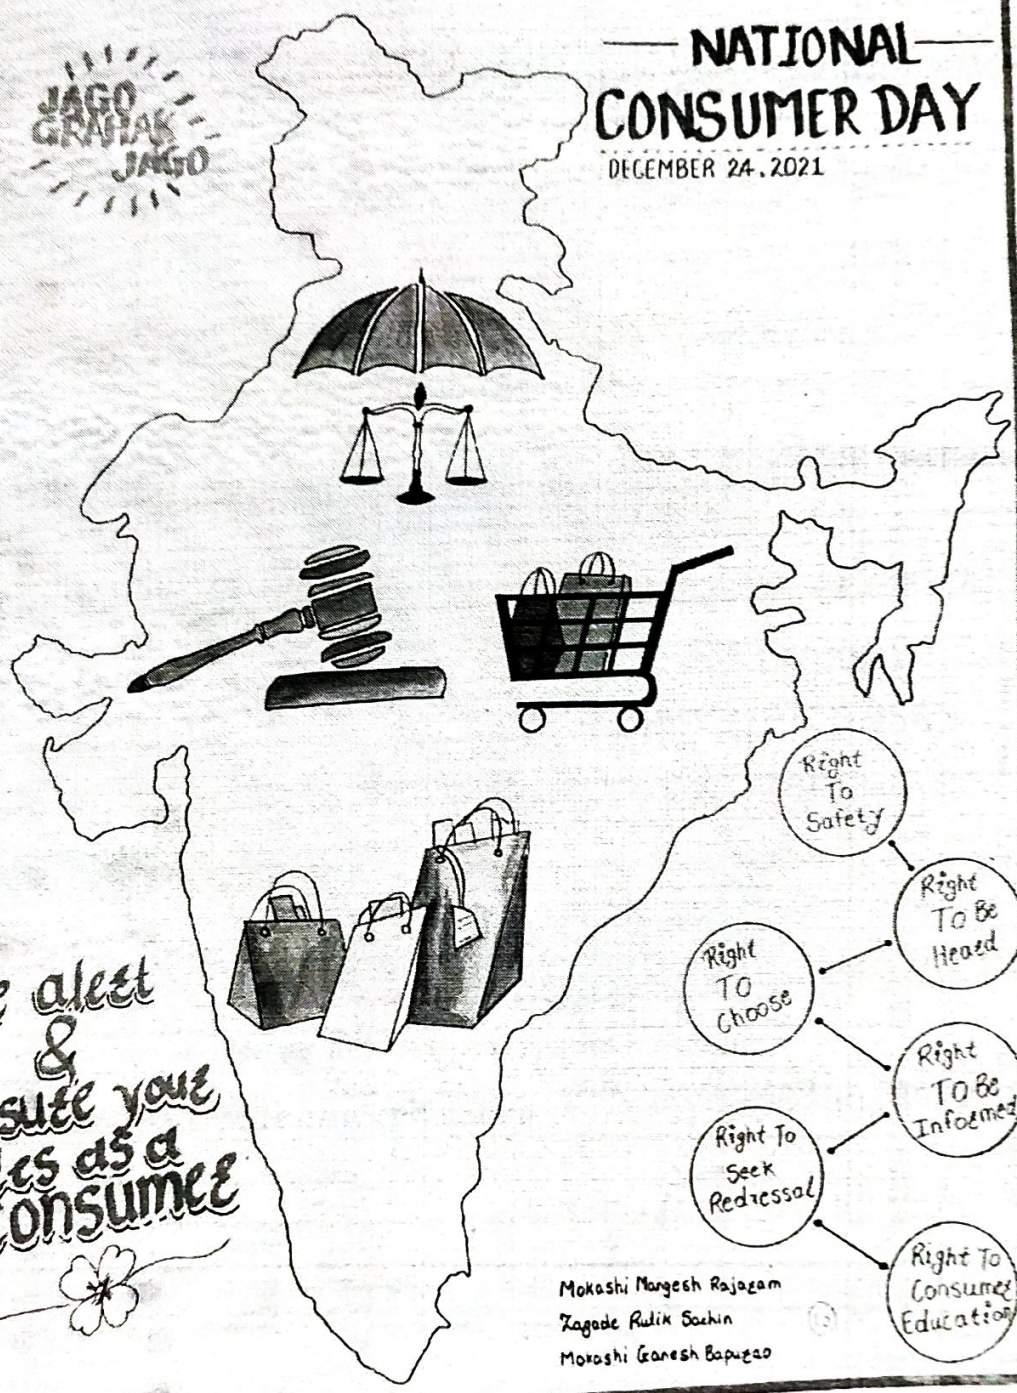 JAGO
GRAHAK
JAGO
NATIONAL
CONSUMER DAY
DECEMBER 24.2021
Right
To
Safety
Right
To Be
Heard
Right
To
Choose
Right
To Be
Informed
Right To
Seek
Redressal
Right To
Consumer
Education
alert
&
your
as a
onsumer
Mokashi Mangesh Rajaram
Zagade Rutik Sachin
Mokashi Ganesh Bapurao